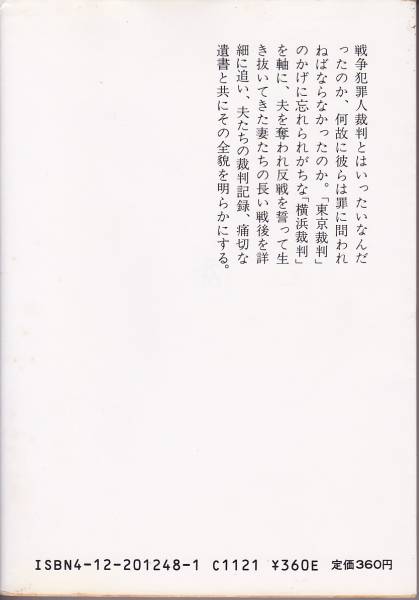 戦争犯罪人裁判とはいったいなんだ
ったのか、何故に彼らは罪に問われ
ねばならなかったのか。「東京裁判」
のかげに忘れられがちな「横浜裁判」
を軸に、夫を奪われ反戦を誓って生
き抜いてきた妻たちの長い戦後を詳
細に追い、夫たちの裁判記録、痛切な
遺書と共にその全貌を明らかにする。
ISBN4-12-201248-1 C1121 ¥360E 定価360円